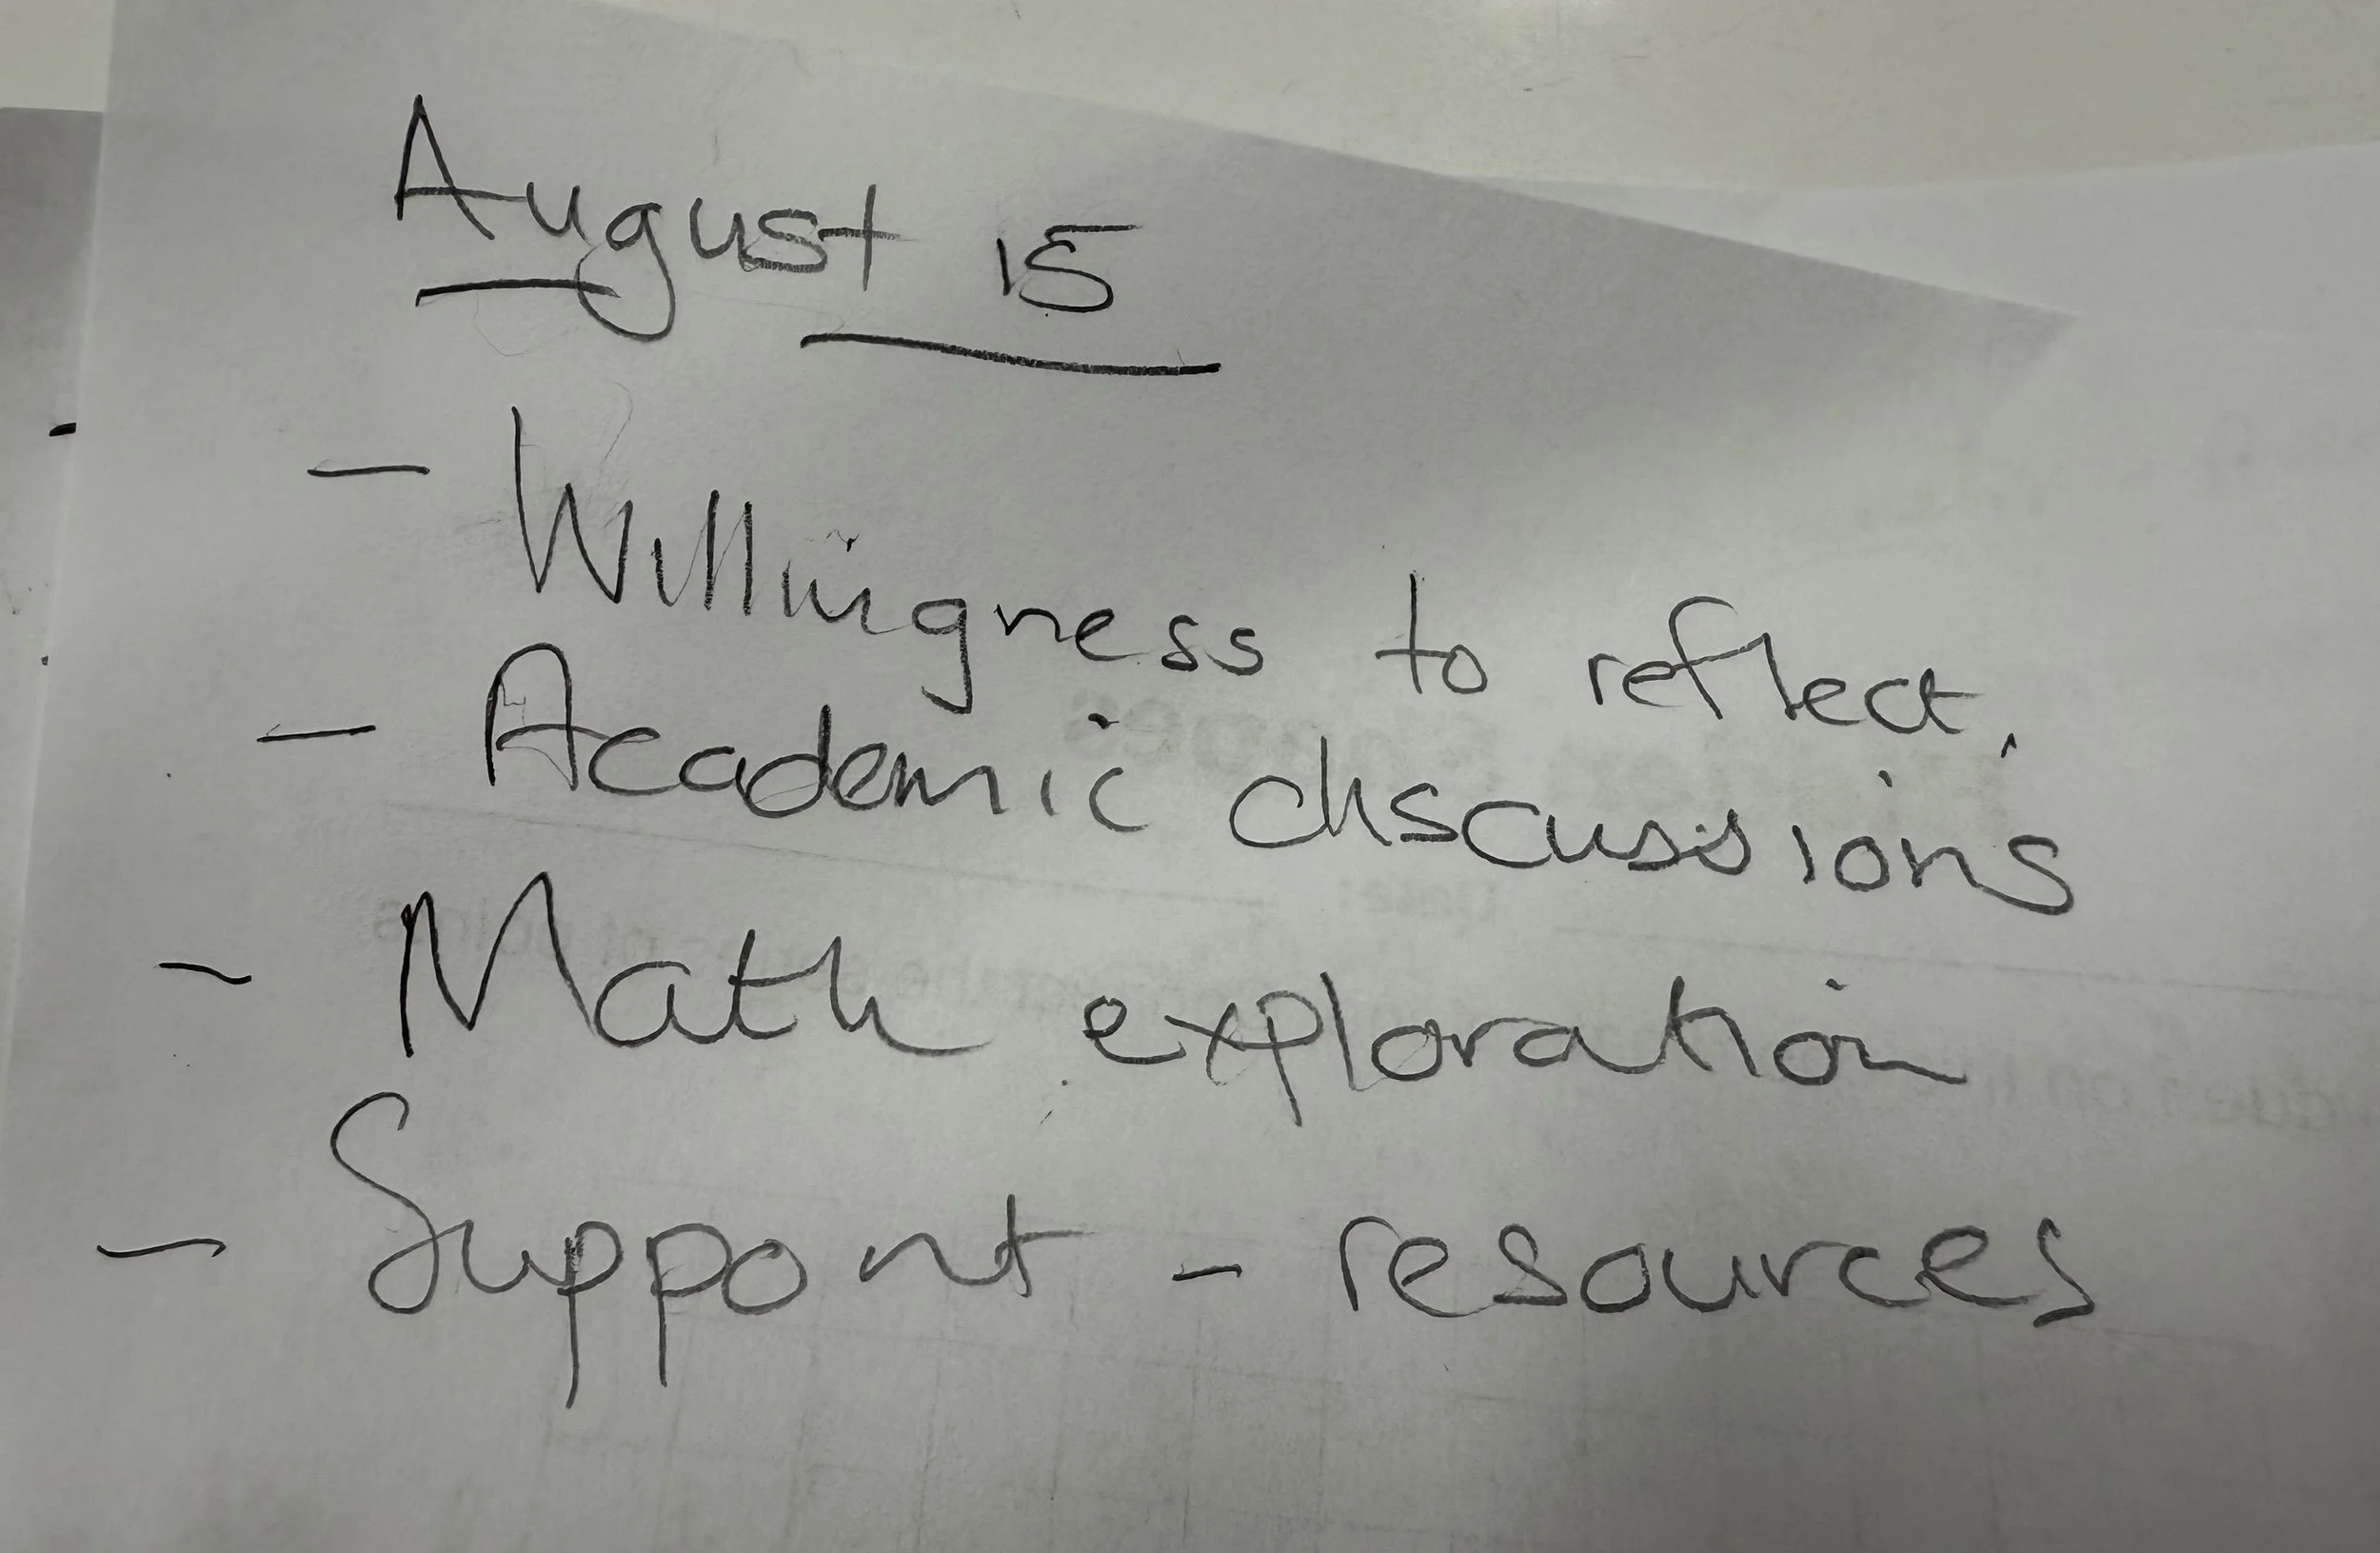 August 15
- Willingness to reflect.
- Academic discussions
- Math exploration
- Support - resources